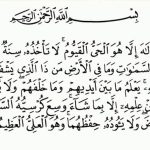 بِسْمِ اللَّهِ الرَّحْمَٰنِ الرَّحِيمِ
إِلَّا هُوَ الْحَيُّ الْقَيُّومُ ۚ لَا تَأْخُذُهُ سِنَةٌ
السَّمَٰوَٰتِ وَمَا فِي الْأَرْضِ مَن ذَا الَّذِي
يَعْلَمُ مَا بَيْنَ أَيْدِيهِمْ وَمَا خَلْفَهُمْ وَلَا
عِلْمِهِ إِلَّا بِمَا شَاءَ وَسِعَ كُرْسِيُّهُ
وَلَا يَئُودُهُ حِفْظُهُمَا وَهُوَ الْعَلِيُّ الْعَظِيمُ